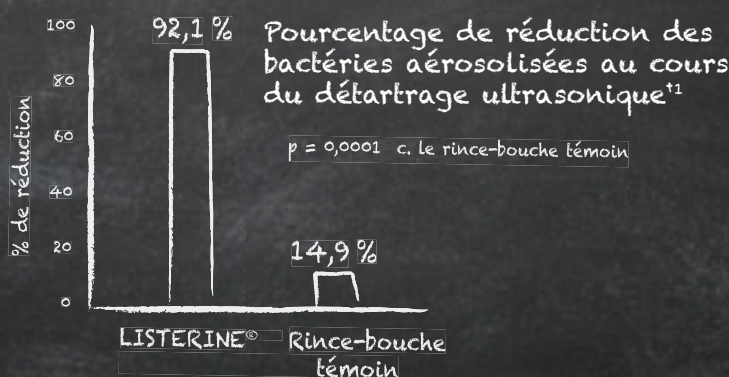 Pourcentage de réduction des
bactéries aérosolisées au cours
du détartrage ultrasonique†1
p = 0,0001 c. le rince-bouche témoin
% de réduction
100
80
60
40
20
0
92,1 %
14,9 %
LISTERINE®
Rince-bouche
témoin